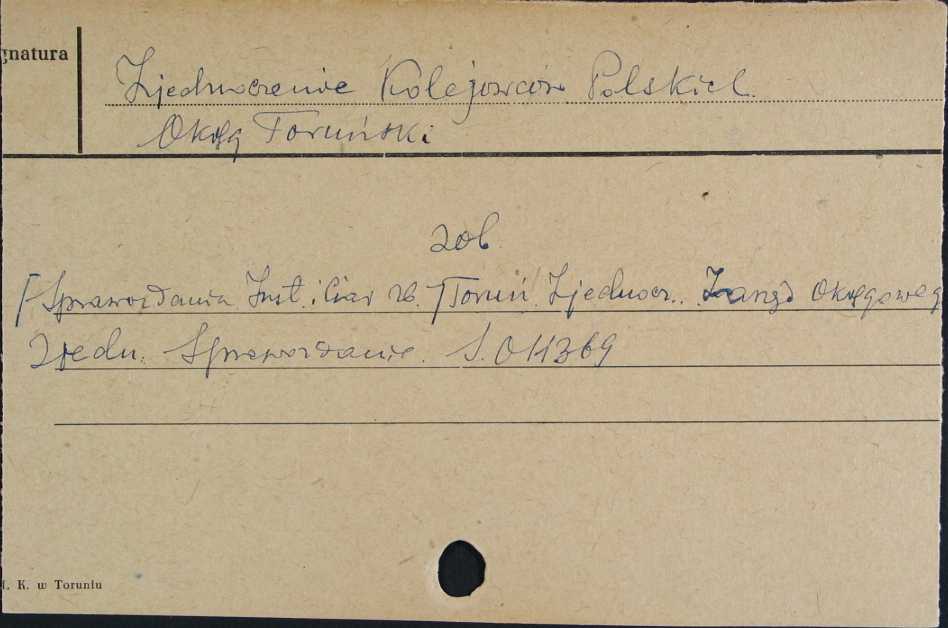 gnatura
Zjednoczenie Kolejowców Polskich
Okręg Toruński
zob.
[Sprawozdania Inst. i Ciał zb.] Toruń. Zjednocz.. Zarząd Okręgoweg
Zjedn. Sprawozdanie. S. 011369
I. K. w Toruniu